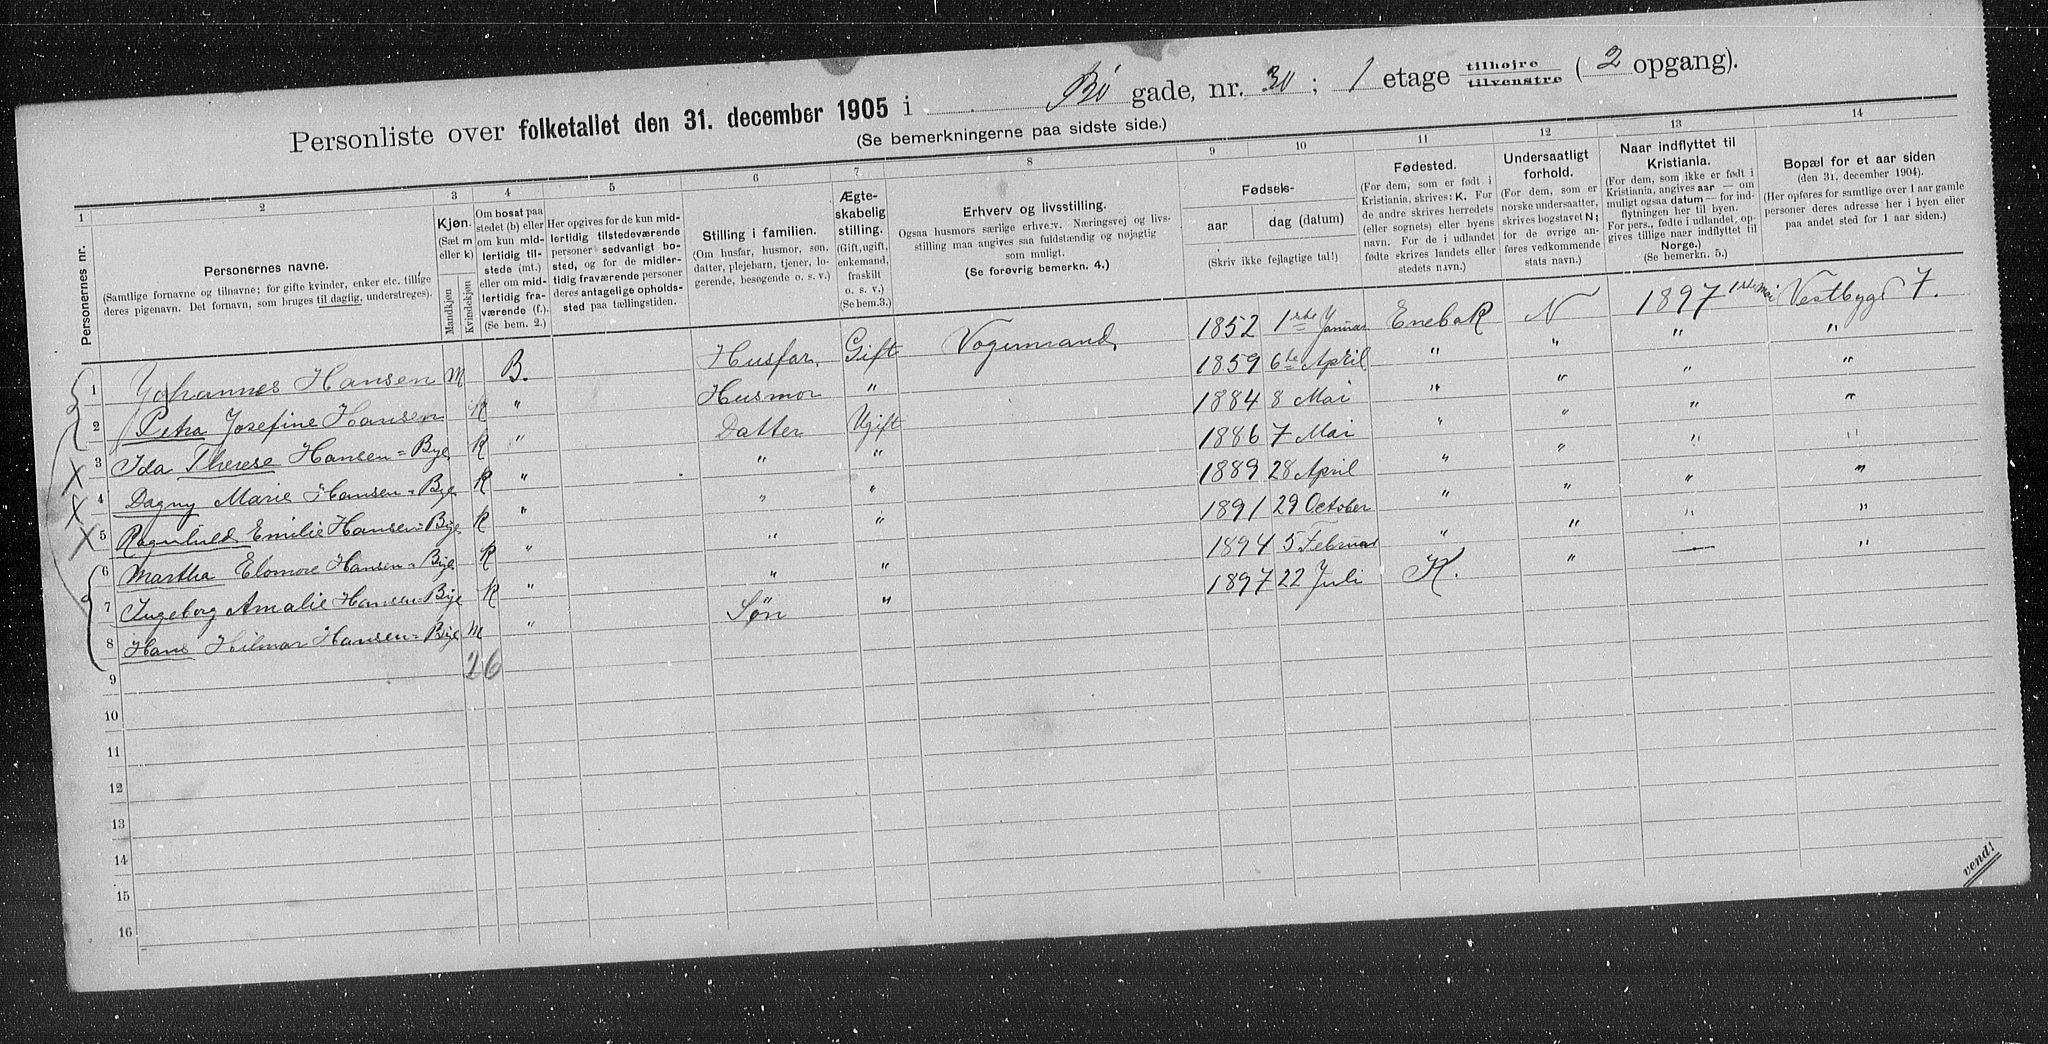 Personliste over folketallet den 31. december 1905 i Bö gade, nr. 30; 1 etage tilhøjre tilvenstre (2 opgang).
(Se bemerkningerne paa sidste side.)
1 2 3 4 5 6 7 8 9 10 11 12 13 14
Personernes nr.
Personernes navne.
(Samtlige fornavne og tilnavne; for gifte kvinder, enker etc. tillige
deres pigenavn. Det fornavn, som bruges til daglig, understreges).
Kjøn.
(Sæt m
eller k)
Mandkjøn
Kvindekjøn
Om bosat paa
stedet (b) eller
om kun mid-
lertidig til-
stede (mt.)
eller om mid-
lertidig fra-
værende (f.).
(Se bem. 2.)
Her opgives for de kun mid-
lertidig tilstedeværende
personer sedvanligt bo-
sted, og for de midler-
tidig fraværende personer
deres antagelige opholds-
sted paa tællingstiden.
Stilling i familien.
(Om husfar, husmor, søn,
datter, plejebarn, tjener, lo-
gerende, besøgende o. s. v.)
Ægte-
skabelig
stilling.
(Gift, ugift,
enkemand,
fraskilt
o. s. v.)
(Se bem.3.)
Erhverv og livsstilling.
Ogsaa husmors særlige erhverv. Næringsvej og livs-
stilling maa angives saa fuldstændig og nøjagtig
som muligt.
(Se forøvrig bemerkn. 4.)
Fødsels-
aar
dag (datum)
(Skriv ikke fejlagtige tal!)
Fødested.
(For dem, som er født i
Kristiania, skrives: K. For
de andre skrives herredets
(eller sognets) eller byens
navn. For de i udlandet
fødte skrives landets eller
stedets navn.)
Undersaatligt
forhold.
(For dem, som er
norske undersaatter,
skrives bogstavet N;
for de øvrige an-
føres vedkommende
stats navn.)
Naar indflyttet til
Kristiania.
(For dem, som ikke er født i
Kristiania, angives aar — om
muligt ogsaa datum — for ind-
flytningen her til byen.
For pers., fødte i udlandet, op-
gives tillige naar indflyttet til
Norge.)
(Se bemerkn. 5.)
Bopæl for et aar siden
(den 31. december 1904).
(Her opføres for samtlige over 1 aar gamle
personer deres adresse her i byen eller
paa andet sted for 1 aar siden.)
1 Johannes Hansen M B. Husfar, Gift Vognmand, 1852 1ste Januar Enebak N 1897 1ste Mai Vestbygd 7.
2 Petra Josefine Hansen K " Husmor " 1859 6te April " " " "
X 3 Ida Therese Hansen=Bye K " Datter Ugift 1884 8 Mai " " " "
X 4 Dagny Marie Hansen=Bye K " " " 1886 7 Mai " " " "
X 5 Ragnhild Emilie Hansen=Bye K " " " 1889 28 April " " " "
6 Martha Elomore Hansen=Bye K " " " 1891 29 October " " " "
7 Ingeborg Amalie Hansen=Bye K " " " 1894 5 Februar " " " "
8 Hans Hilmar Hansen=Bye M " Søn " 1897 22 Juli K. " — "
9 2 6
10
11
12
13
14
15
16
vend!